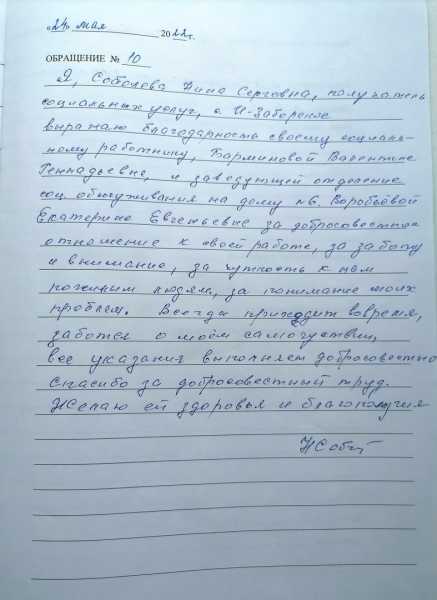 «24» мая 2022 г.
ОБРАЩЕНИЕ № 10
Я, Соболева Нина Сергеевна, получатель
социальных услуг, с. И-Заборские
выражаю благодарность своему социаль-
ному работнику, Барминовой Валентине
Геннадьевне, и заведующей отделение
соц. обслуживания на дому №6. Воробьёвой
Екатерине Евгеньевне за добросовестное
отношение к своей работе, за заботу
и внимание, за чуткость к нам
пожилым людям, за понимание моих
проблем. Всегда приходит вовремя,
заботся о моём самочувствии,
все указания выполняет добросовестно
Спасибо за добросовестный труд.
Желаю ей здоровья и благополучия